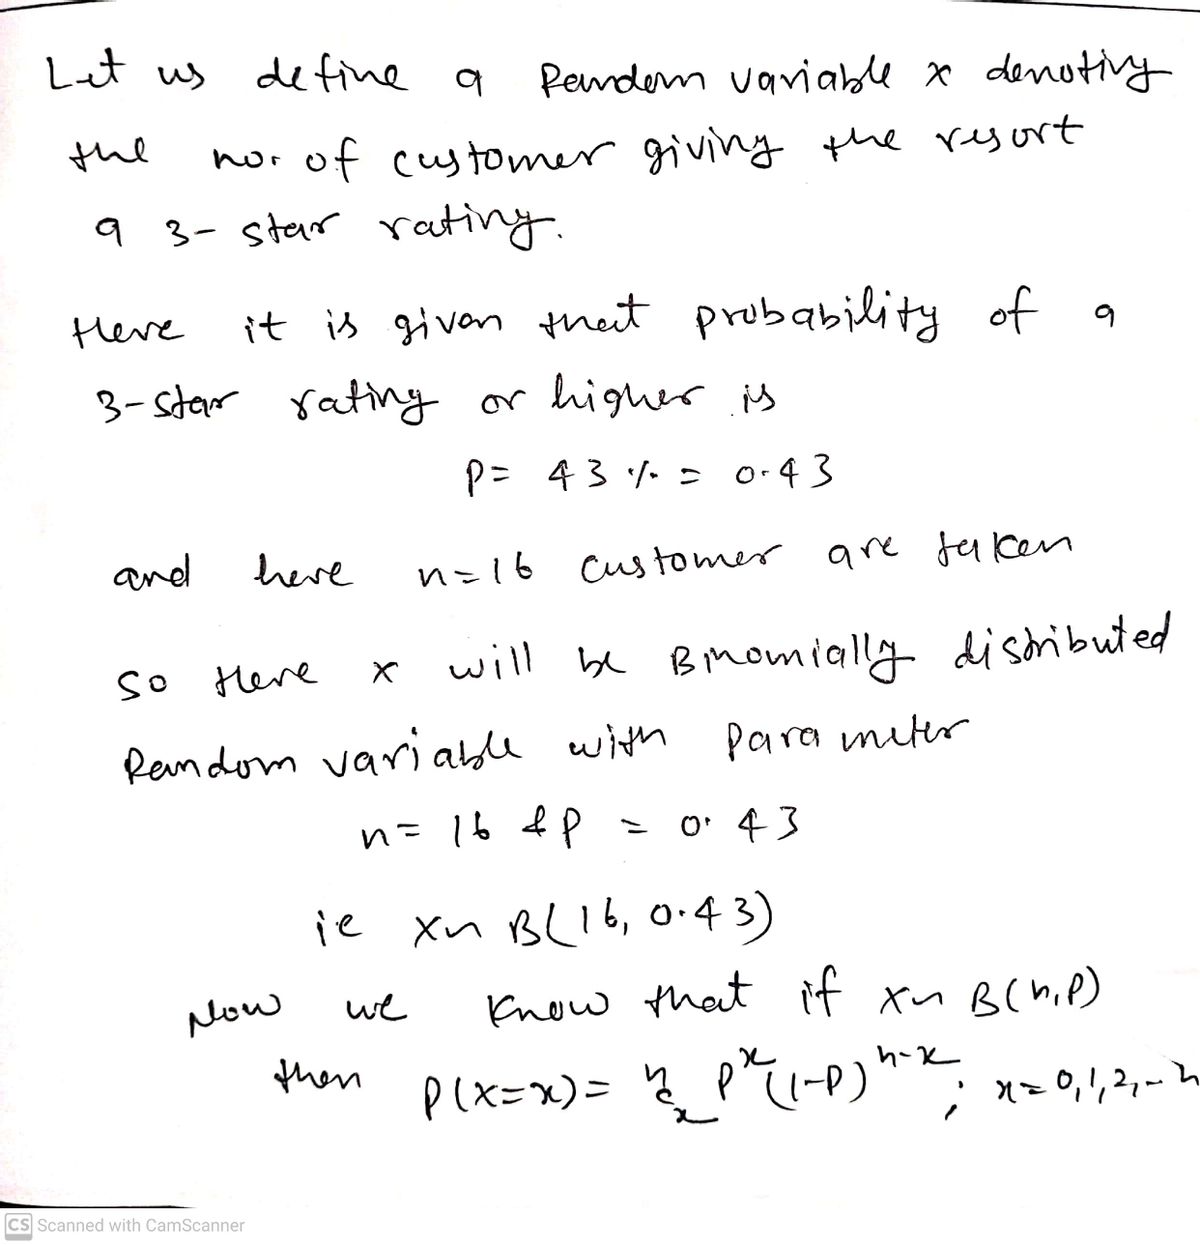 Let us define a Random variable x denoting
the no. of customer giving the resort
a 3-star rating.
Here it is given that probability of a
3-star rating or higher is
p = 43 % = 0.43
and here n=16 customer are taken
So Here x will be Binomially distributed
Random variable with parameter
n = 16 & p = 0.43
ie X~ B(16, 0.43)
Now we know that if X~ B(n,p)
then P(X=x) = ⁿCₓ pˣ(1-p)ⁿ⁻ˣ ; x = 0,1,2,-- n
CS Scanned with CamScanner